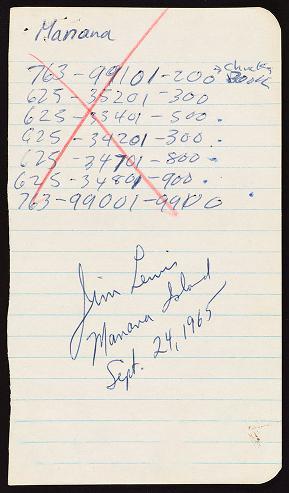 Manana
763-99101-200 → Chuck's Book
625-35201-300
625-33401-500.
625-34201-300.
625-34701-800.
625-34801-900.
763-99001-99100
Jim Lewis
Manana Island
Sept. 24, 1965